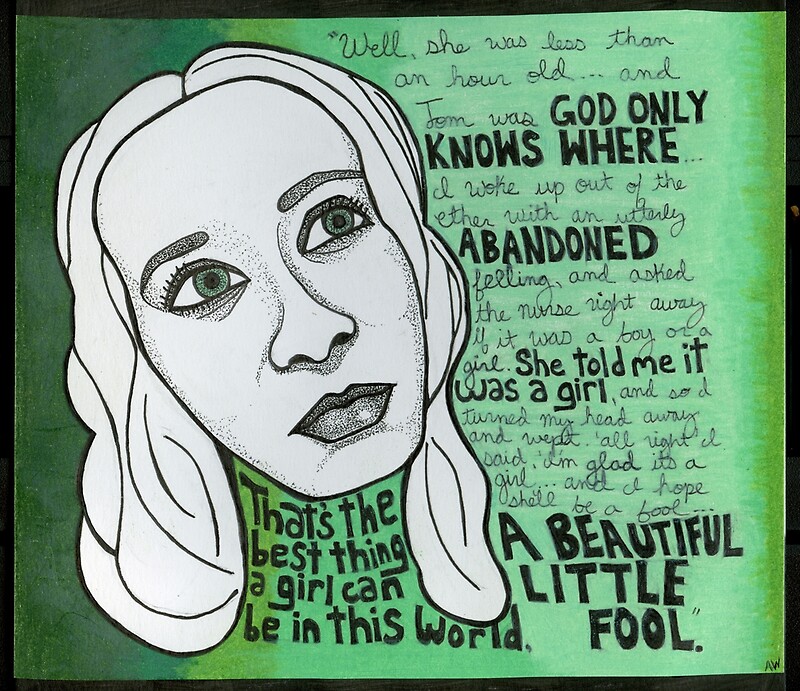 "Well, she was less than
an hour old... and
Tom was GOD ONLY
KNOWS WHERE...
I woke up out of the
ether with an utterly
ABANDONED
felling, and asked
the nurse right away
if it was a boy or a
girl. She told me it
was a girl, and so I
turned my head away
and wept. 'all right' I
said, 'I'm glad its a
girl... and I hope
she'll be a fool'...
That's the
best thing
a girl can
be in this world,
A BEAUTIFUL
LITTLE
FOOL."
AW